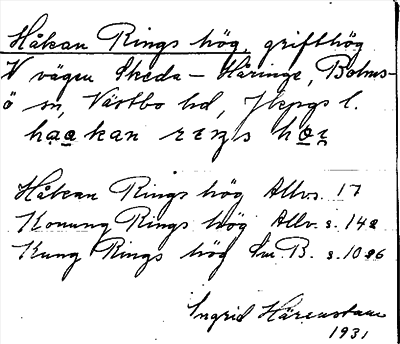 Håkan Rings hög, grifthög
V vägen Skeda – Håringe, Bolms-
ö sn, Västbo hd, Jkpgs l.
Håkan Rings hög Allvs. 17
Konung Rings hög Allv. s. 142
Kung Rings hög Sm B. s. 1086
Ingrid Härenstam
1931